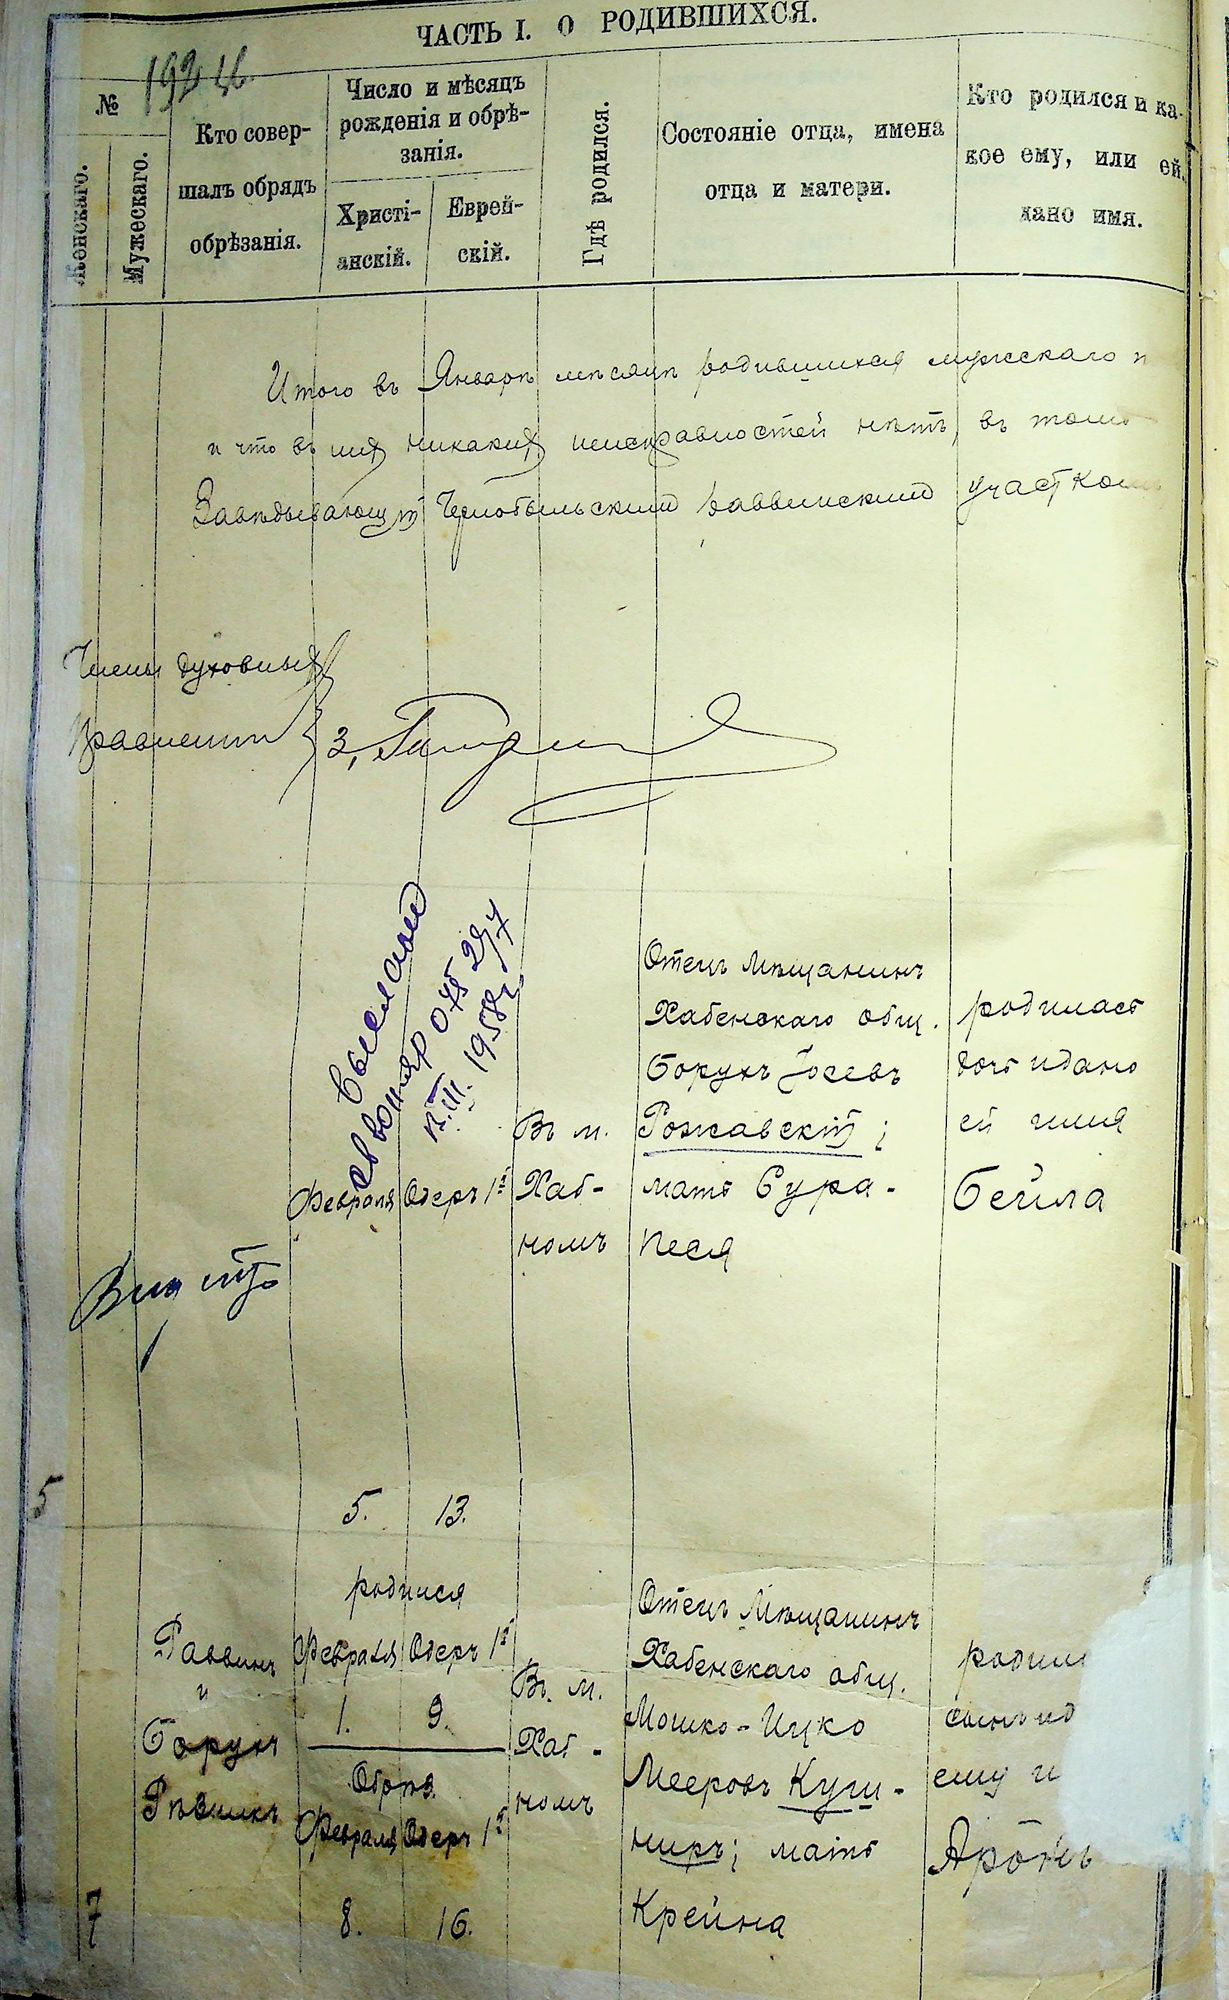 ЧАСТЬ I. О РОДИВШИХСЯ.
№
Женскаго.
Мужескаго.
Кто совер-
шалъ обрядъ
обрѣзанія.
Число и мѣсяцъ
рожденія и обрѣ-
занія.
Христі-
анскій.
Еврей-
скій.
Гдѣ родился.
Состояніе отца, имена
отца и матери.
Кто родился и ка-
кое ему, или ей,
дано имя.
Итого въ Январѣ мѣсяцѣ родившихся мужескаго п
и что въ никакихъ неисправностей нѣтъ, въ томъ
Завѣдывающій Чернобыльскимъ раввинскимъ участкомъ
Члены духовныхъ
Правленія
З.
Выслано
свид
075 297
12.III. 1958г.
5
Февраля
5.
Одеръ 1й
13.
Въ м.
Хаб-
номъ
Отецъ Мѣщанинъ
Хабенскаго общ.
Борухъ Іосевъ
Рожавскій;
мать Сура-
Песя
родилась
дочь и дано
ей имя
Бейла
7
Раввинъ
и
Борухъ
Рѣзникъ
родился
Февраля Одеръ 1й
1. 9.
Обрѣз.
Февраля Одеръ 1й
8. 16.
Въ м.
Хаб-
номъ
Отецъ Мѣщанинъ
Хабенскаго общ.
Мошко-Ицко
Мееровъ Куш-
ниръ; мать
Крейна
родил
сынъ и д
ему и
Аронъ